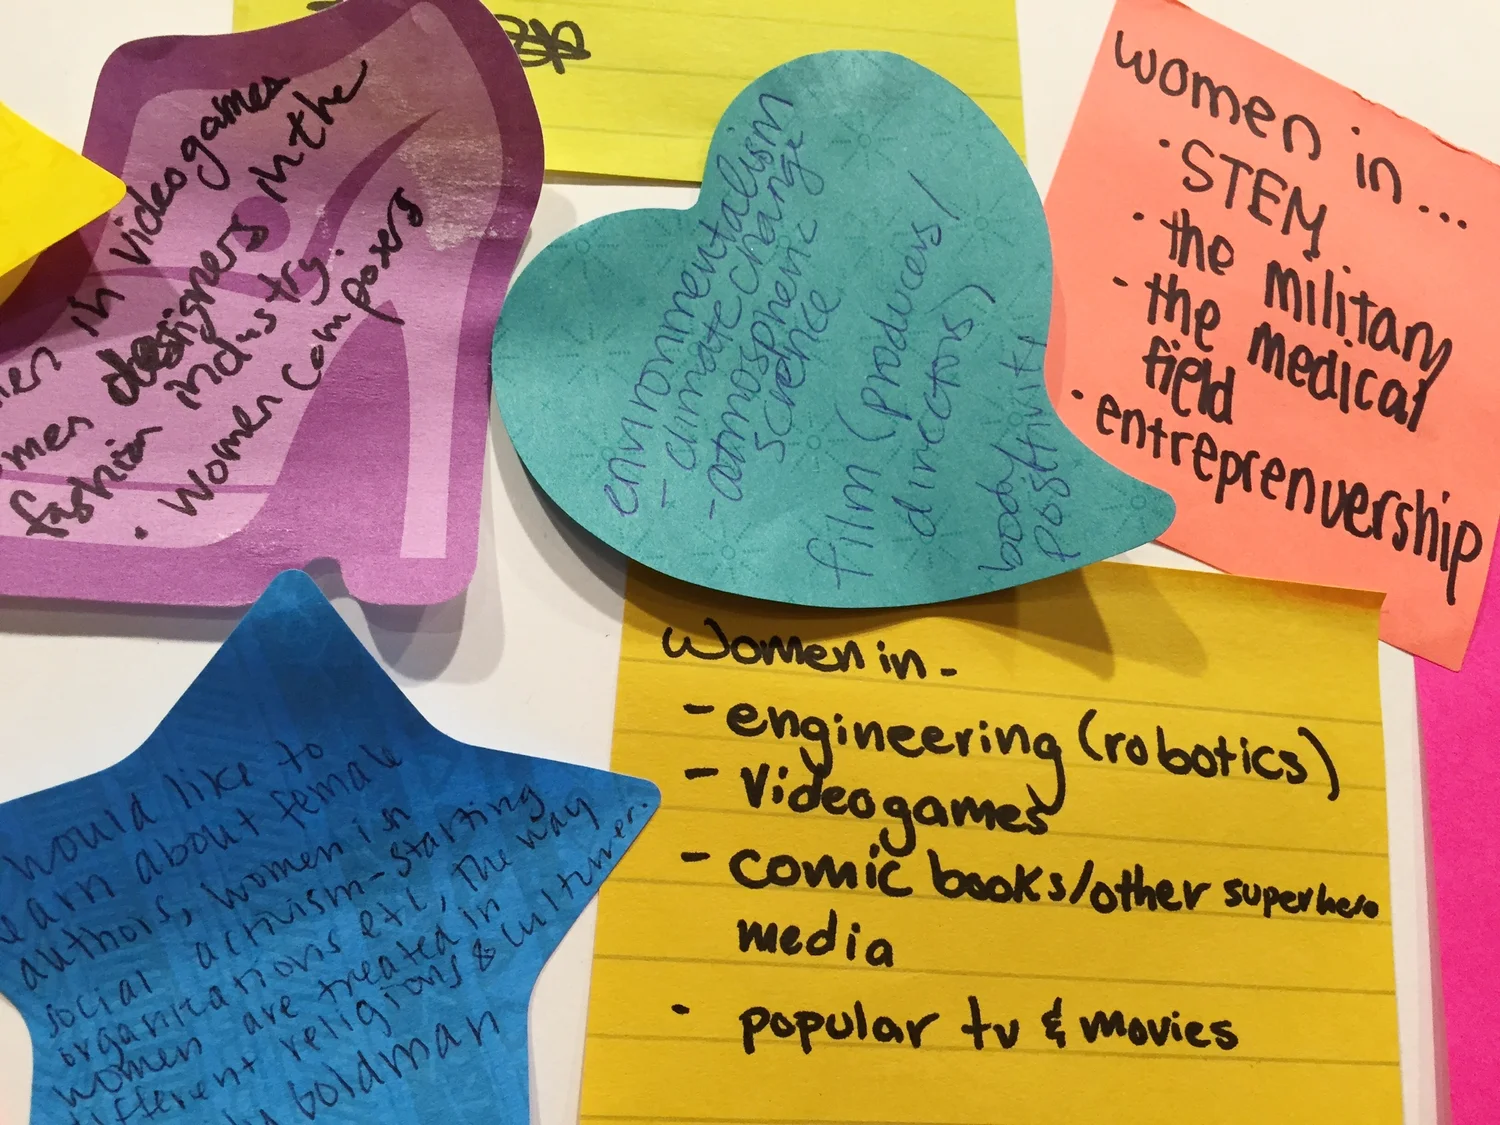 in videogames
designers in the
fashion industry.
• Women composers
environmentalism
- climate change
- atmospheric
science
film (producers/
directors)
body
positivity
women in...
• STEM
• the military
• the medical
field
• entreprenuership
Women in -
- engineering (robotics)
- Videogames
- comic books/other superhero
media
- popular tv & movies
would like to
learn about female
authors, women in
social activism - starting
organizations etc, the way
women are treated in
different religions & cultures.
Goldman